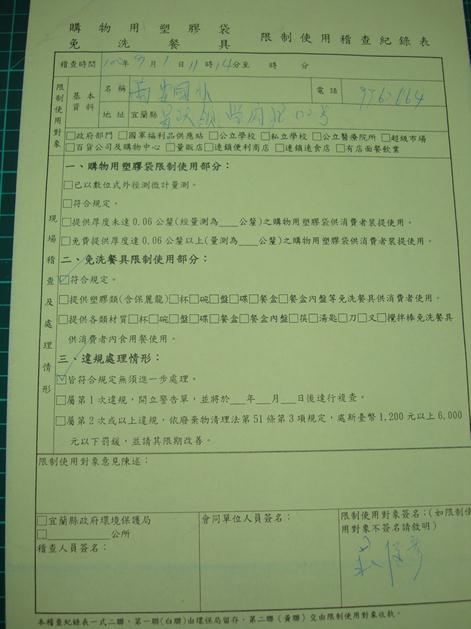 購物用塑膠袋
免洗餐具 限制使用稽查紀錄表
稽查時間 年9月1日11時14分至 時 分
限制使用對象 基本資料 名稱 萬富國小 電話
地址 宜蘭縣
□政府部門 □國軍福利品供應站 □公立學校 □私立學校 □公立醫療院所 □超級市場
□百貨公司及購物中心 □量販店 □連鎖便利商店 □連鎖速食店 □有店面餐飲業
現場稽查及處理情形
一、購物用塑膠袋限制使用部分：
□已以數位式外徑測微計量測。
□符合規定。
□提供厚度未達0.06公釐(經量測為____公釐)之購物用塑膠袋供消費者裝提使用。
□免費提供厚度達0.06公釐以上(量測為____公釐)之購物用塑膠袋供消費者裝提使用。
二、免洗餐具限制使用部分：
☑符合規定。
□提供塑膠類(含保麗龍)□杯□碗□盤□碟□餐盒□餐盒內盤等免洗餐具供消費者使用。
□提供各類材質□杯□碗□盤□碟□餐盒□餐盒內盤□筷□湯匙□刀□叉□攪拌棒免洗餐具
供消費者內食用餐使用。
三、違規處理情形：
☑皆符合規定無須進一步處理。
□屬第1次違規，開立警告單，並將於___年___月___日後進行複查。
□屬第2次或以上違規，依廢棄物清理法第51條第3項規定，處新臺幣1,200元以上6,000
元以下罰鍰，並請其限期改善。
限制使用對象意見陳述：
□宜蘭縣政府環境保護局
□__________公所
稽查人員簽名：
會同單位人員簽名：
限制使用對象簽名：(如限制使
用對象不簽名請敘明)
本稽查紀錄表一式二聯，第一聯(白聯)由環保局留存，第二聯(黃聯)交由限制使用對象收執。